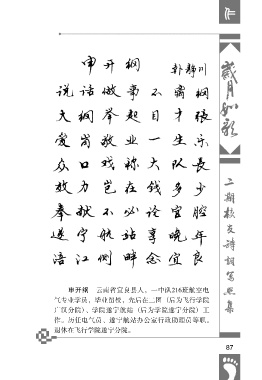 岁月如歌
二期校友诗词写照集
申开纲
说话做事不霸纲
大纲举起目才张
爱岗敬业一生乐
众口戏称大队长
效力岂在钱多少
奉献不必论官腔
遂宁航站享晚年
涪江侧畔念宜良
申开纲 云南省宜良县人。一中队216班航空电
气专业学员，毕业留校。先后在二团（后为飞行学院
广汉分院）、学院遂宁航站（后为学院遂宁分院）工
作。历任电气员、遂宁航站办公室行政助理员等职。
退休在飞行学院遂宁分院。
87